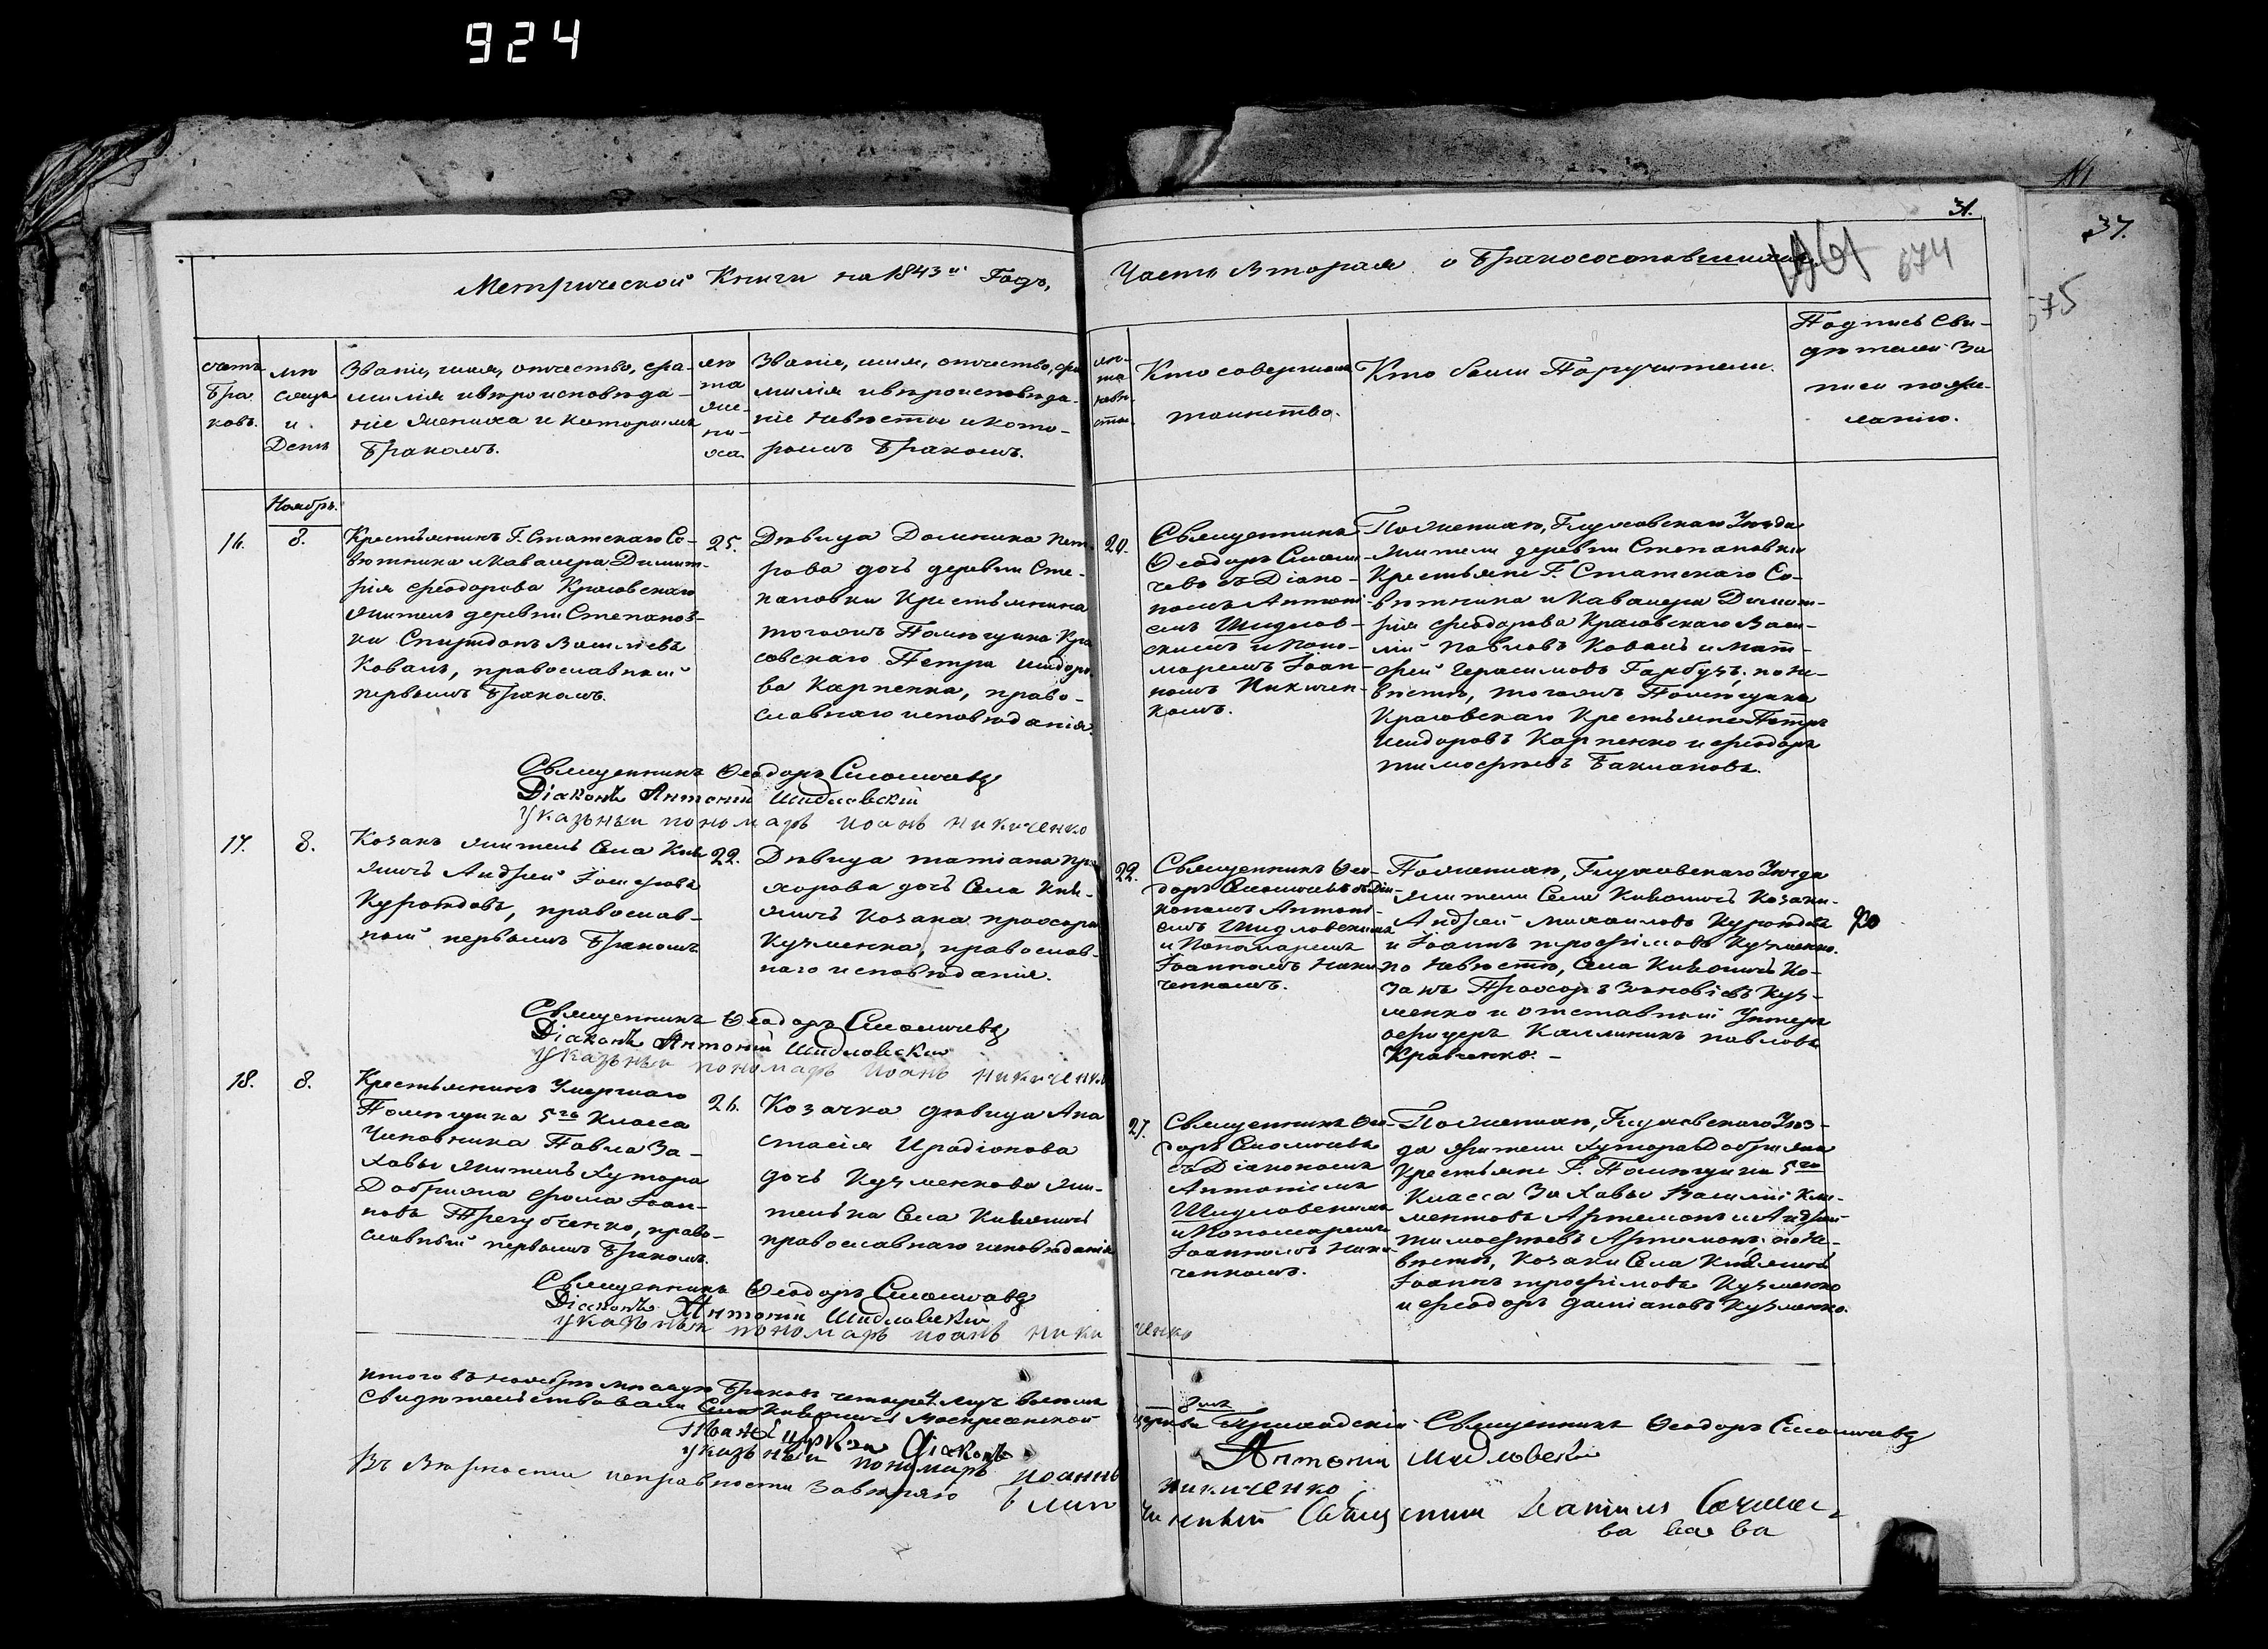 924
31.
37.
674
575
Метрической Книги на 1843й Годъ,
Часть Вторая о Бракосочетавшихся
счетъ
Бра
ковъ.
мѣ
сяцъ
и
День
Званіе, имя, отчество, фа-
милія и вѣроисповѣда-
ніе жениха и которымъ
Бракомъ.
лѣ
та
же-
ни-
ха
Званіе, имя, отчество, фа
милія и вѣроисповѣда-
ніе Невѣсты и кото-
рымъ Бракомъ.
лѣ-
та
невѣ-
сты.
Кто совершалъ
таинство.
Кто были Поручители.
Подпись Сви-
дѣтелей За
писи по же-
ланію.
Ноябрь.
16.
8.
Крестьянинъ Г. Статскаго Со-
вѣтника и Кавалера Димит-
рія Феодорова Красовскаго
житель деревни Степанов-
ки Спиридонъ Васильевъ
Коваль, православный
первымъ Бракомъ.
25.
Дѣвица Домника Пет-
рова дочь деревни Сте-
пановки Крестьянина
тогожъ Помѣщика Кра
совскаго Петра Исидоро-
ва Карпенка, право-
славнаго исповѣданія.
20.
Священникъ
Ѳеодоръ
съ Діако-
номъ Антоні
емъ Шидлов-
скимъ и Поно-
маремъ Іоан-
номъ Никичен-
комъ.
По жениху, Глуховскаго Уѣзда
жители деревни Степановки
Крестьяне Г. Статскаго Со-
вѣтника и Кавалера Димит-
рія Феодорова Красовскаго Васи-
лій Павловъ Коваль и Мат-
фей Герасимовъ Гарбузъ; по не-
вѣстѣ, тогожъ Помѣщика
Красовскаго Крестьяне Петръ
Исидоровъ Карпенко и Феодоръ
Тимофѣевъ Баклановъ.
Священникъ Ѳеодоръ
Діаконъ Антоній Шидловскій
Указный пономарь Иоанъ Никиченко
17.
8.
Козакъ житель Села
Андрей Іосифовъ
православ-
ный первымъ Бракомъ
22.
Дѣвица Татіана Про
хорова дочь Села
Козака Прохора
Кузменка, православ-
наго исповѣданія.
22.
Священникъ Ѳео-
доръ съ Діа-
кономъ Антоні-
емъ Шидловскимъ
и Пономаремъ
Іоанномъ Ники-
ченкомъ.
По жениху, Глуховскаго Уѣзда
жители Села Козаки
Андрей Михайловъ
и Іоаннъ Трофимовъ Кузменко.
по Невѣстѣ, Села Ко-
закъ Прохоръ Зѣновіевъ Куз-
менко и отставный Унтеръ
офицеръ Каллиникъ Павловъ
Кравченко. –
Священникъ Ѳеодоръ
Діаконъ Антоній Шидловскій
Указный пономарь Иоанъ Никиченко
18.
8.
Крестьянинъ Умершаго
Помѣщика 5го Класса
Чиновника Павла За-
житель Хутора
Фома Іоан-
новъ Трегубенко, право-
славный первымъ Бракомъ.
26.
Козачка дѣвица Ана
стасія Иродіонова
дочь Кузменкова жи-
телька Села
православнаго исповѣданія
27.
Священникъ Ѳео-
доръ
съ Діакономъ
Антоніемъ
Шидловскимъ
и Пономаремъ
Іоанномъ Ники-
ченкомъ.
По жениху, Глуховскаго Уѣз-
да жители Хутора
Крестьяне Г. Помѣщика 5го
Класса Василій Кли-
ментовъ Артемонъ и Андрей
Тимофѣевъ Артемонъ; по Не-
вѣстѣ, Козаки Села
Іоаннъ Трофимовъ Кузменко
и Феодоръ Даміановъ Кузменко.
Священникъ Ѳеодоръ
Діаконъ Антоній Шидловскій
Указный пономарь Иоанъ Никиченко
Итого въ ноябрѣ мѣсяцѣ Браковъ четыре 4 муж восемь 8мь
Свидѣтельствовали Села Воскресенской церкви Приходскій Священникъ Ѳеодоръ
церкви Діаконъ Антоній Шидловскій
указный пономарь Иоаннъ Никиченко
Въ вѣрности исправности завѣряю Священникъ